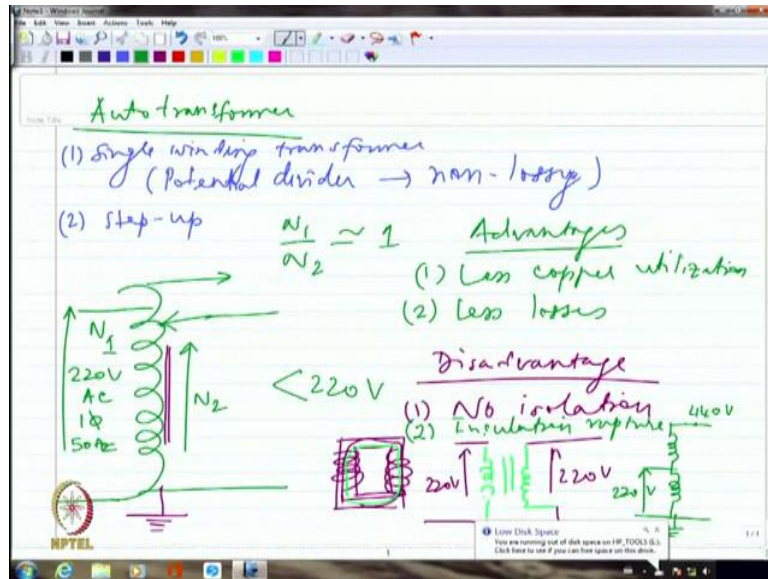 Note1 - Windows Journal
File Edit View Insert Actions Tools Help
100%
Note Title
Autotransformer
(1) Single winding transformer
(Potential divider → non-lossy)
(2) Step-up
N1/N2 ≃ 1
Advantages
(1) Less copper utilization
(2) Less losses
N1
220V
AC
1φ
50Hz
N2
<220V
Disadvantage
(1) No isolation
(2) Insulation rupture
220V
220V
440V
220V
NPTEL
Low Disk Space
You are running out of disk space on HP_TOOLS (E:).
Click here to see if you can free space on this drive.
1/1